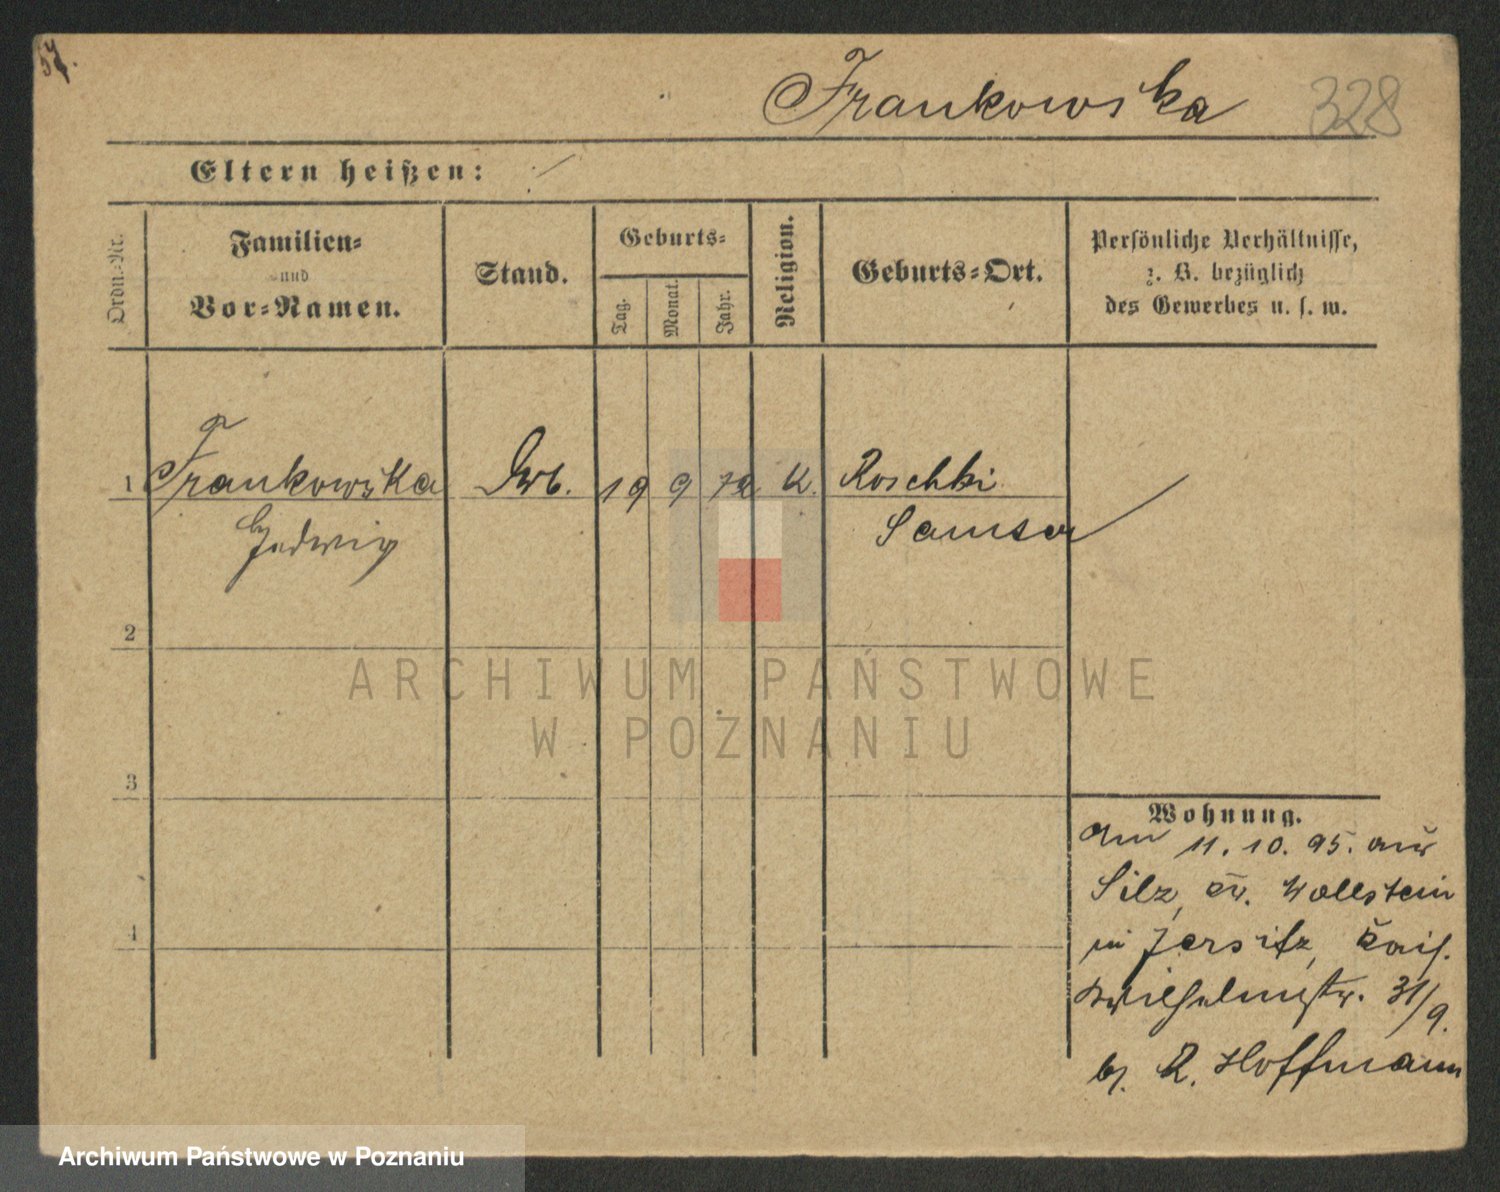 57.
Frankowska 328
Eltern heißen:
Ordn.-Nr.
Familien-
und
Vor-Namen.
Stand.
Geburts-
Tag.
Monat.
Jahr.
Religion.
Geburts-Ort.
Persönliche Verhältnisse,
z. B. bezüglich
des Gewerbes u. s. w.
1 Frankowska 19 9 72 K. Roschki
Hedwig Samter
2
3
4
Wohnung.
am 11. 10. 95. aus
Silz, Kr. Wollstein
in Jersitz, Kais.
Wilhelmstr. 31/9.
bz. R. Hoffmann
ARCHIWUM PAŃSTWOWE
W POZNANIU
Archiwum Państwowe w Poznaniu